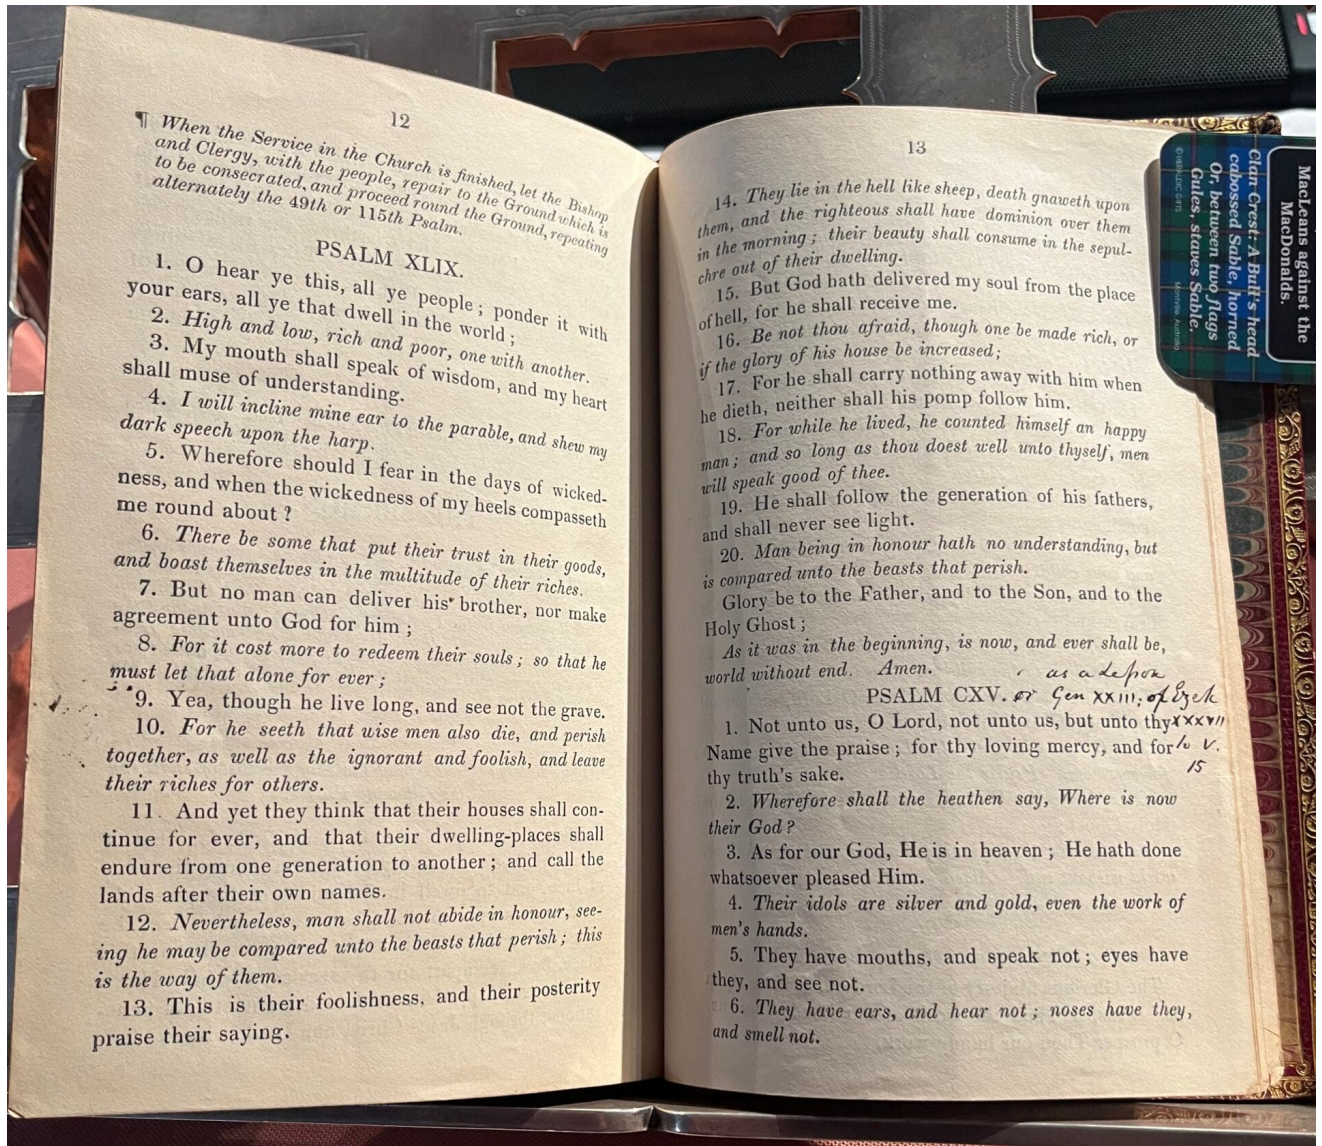 12
¶ When the Service in the Church is finished, let the Bishop
and Clergy, with the people, repair to the Ground which is
to be consecrated, and proceed round the Ground, repeating
alternately the 49th or 115th Psalm.
PSALM XLIX.
1. O hear ye this, all ye people; ponder it with
your ears, all ye that dwell in the world;
2. High and low, rich and poor, one with another.
3. My mouth shall speak of wisdom, and my heart
shall muse of understanding.
4. I will incline mine ear to the parable, and shew my
dark speech upon the harp.
5. Wherefore should I fear in the days of wicked-
ness, and when the wickedness of my heels compasseth
me round about?
6. There be some that put their trust in their goods,
and boast themselves in the multitude of their riches.
7. But no man can deliver his brother, nor make
agreement unto God for him;
8. For it cost more to redeem their souls; so that he
must let that alone for ever;
9. Yea, though he live long, and see not the grave.
10. For he seeth that wise men also die, and perish
together, as well as the ignorant and foolish, and leave
their riches for others.
11. And yet they think that their houses shall con-
tinue for ever, and that their dwelling-places shall
endure from one generation to another; and call the
lands after their own names.
12. Nevertheless, man shall not abide in honour, see-
ing he may be compared unto the beasts that perish; this
is the way of them.
13. This is their foolishness, and their posterity
praise their saying.
13
14. They lie in the hell like sheep, death gnaweth upon
them, and the righteous shall have dominion over them
in the morning; their beauty shall consume in the sepul-
chre out of their dwelling.
15. But God hath delivered my soul from the place
of hell, for he shall receive me.
16. Be not thou afraid, though one be made rich, or
if the glory of his house be increased;
17. For he shall carry nothing away with him when
he dieth, neither shall his pomp follow him.
18. For while he lived, he counted himself an happy
man; and so long as thou doest well unto thyself, men
will speak good of thee.
19. He shall follow the generation of his fathers,
and shall never see light.
20. Man being in honour hath no understanding, but
is compared unto the beasts that perish.
Glory be to the Father, and to the Son, and to the
Holy Ghost;
As it was in the beginning, is now, and ever shall be,
world without end. Amen.
as a
PSALM CXV. or Gen XXIII; of Ezek
1. Not unto us, O Lord, not unto us, but unto thy XXXVII
Name give the praise; for thy loving mercy, and for to V.
thy truth's sake. 15
2. Wherefore shall the heathen say, Where is now
their God?
3. As for our God, He is in heaven; He hath done
whatsoever pleased Him.
4. Their idols are silver and gold, even the work of
men's hands.
5. They have mouths, and speak not; eyes have
they, and see not.
6. They have ears, and hear not; noses have they,
and smell not.
MacLeans against the
MacDonalds.
Clan Crest: A Bull's head
cabossed Sable, horned
Or, between two flags
Gules, staves Sable.
© HERALDIC GIFTS
Australia